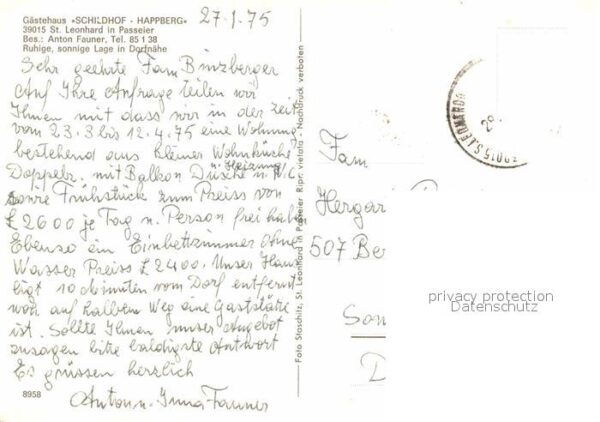 Gästehaus »SCHILDHOF - HAPPBERG«
39015 St. Leonhard in Passeier
Bes.: Anton Fauner, Tel. 85 1 38
Ruhige, sonnige Lage in Dorfnähe
27.1.75
Sehr geehrte Fam Binzberger
Auf Ihre Anfrage teilen wir
Ihnen mit dass wir in der Zeit
vom 23.3 bis 12.4.75 eine Wohnung
bestehend aus kleiner Wohnküche
Doppelz. mit Balkon Dusche n. W.C
n. Heizung
sowie Frühstück zum Preiss von
£ 2600 je Tag n. Person frei haben
Ebenso ein Einbettzimmer ohne
Wasser Preiss £ 2400. Unser Haus
ligt 10 Minuten vom Dorf entfernt
wo auf halbem Weg eine Gaststätte
ist. Sollte Ihnen unser Angebot
zusagen bitte baldigste Antwort
Es grüssen herzlich
Anton n. Irma Fauner
8958
Foto Staschitz, St. Leonhard in Passeier Ripr. vietata - Nachdruck verboten
39015 S. LEONARDO
Fam
Hergar
507 Be
Son
D
privacy protection
Datenschutz